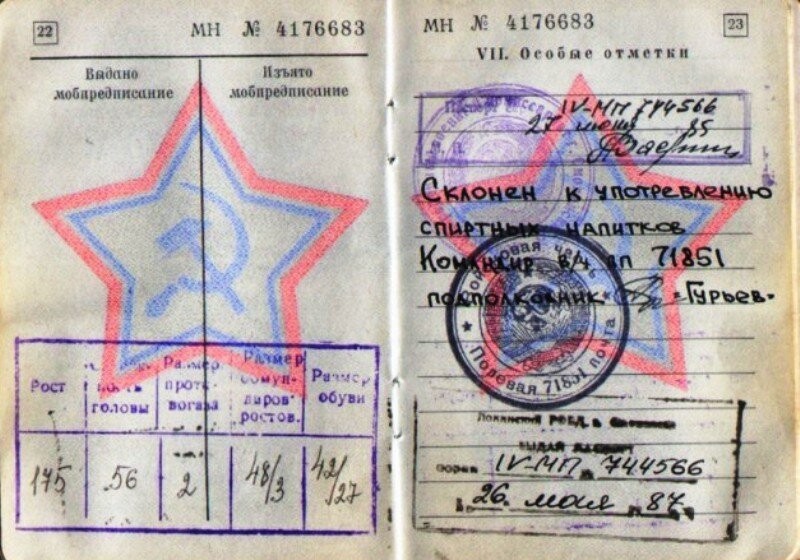 22
МН № 4176683
Выдано мобпредписание
Изъято мобпредписание
Рост
головы
Размер противогаза
Размер обмундиров. ростов.
Размер обуви
175
56
2
48/3
42/27
МН № 4176683
23
VII. Особые отметки
IV-МП 744566
27 85
Склонен к употреблению
спиртных напитков
Командир в/ч пп 71851
подполковник «Гурьев»
Войсковая часть
Полевая почта 71851
IV-МП 744566
26. мая 87